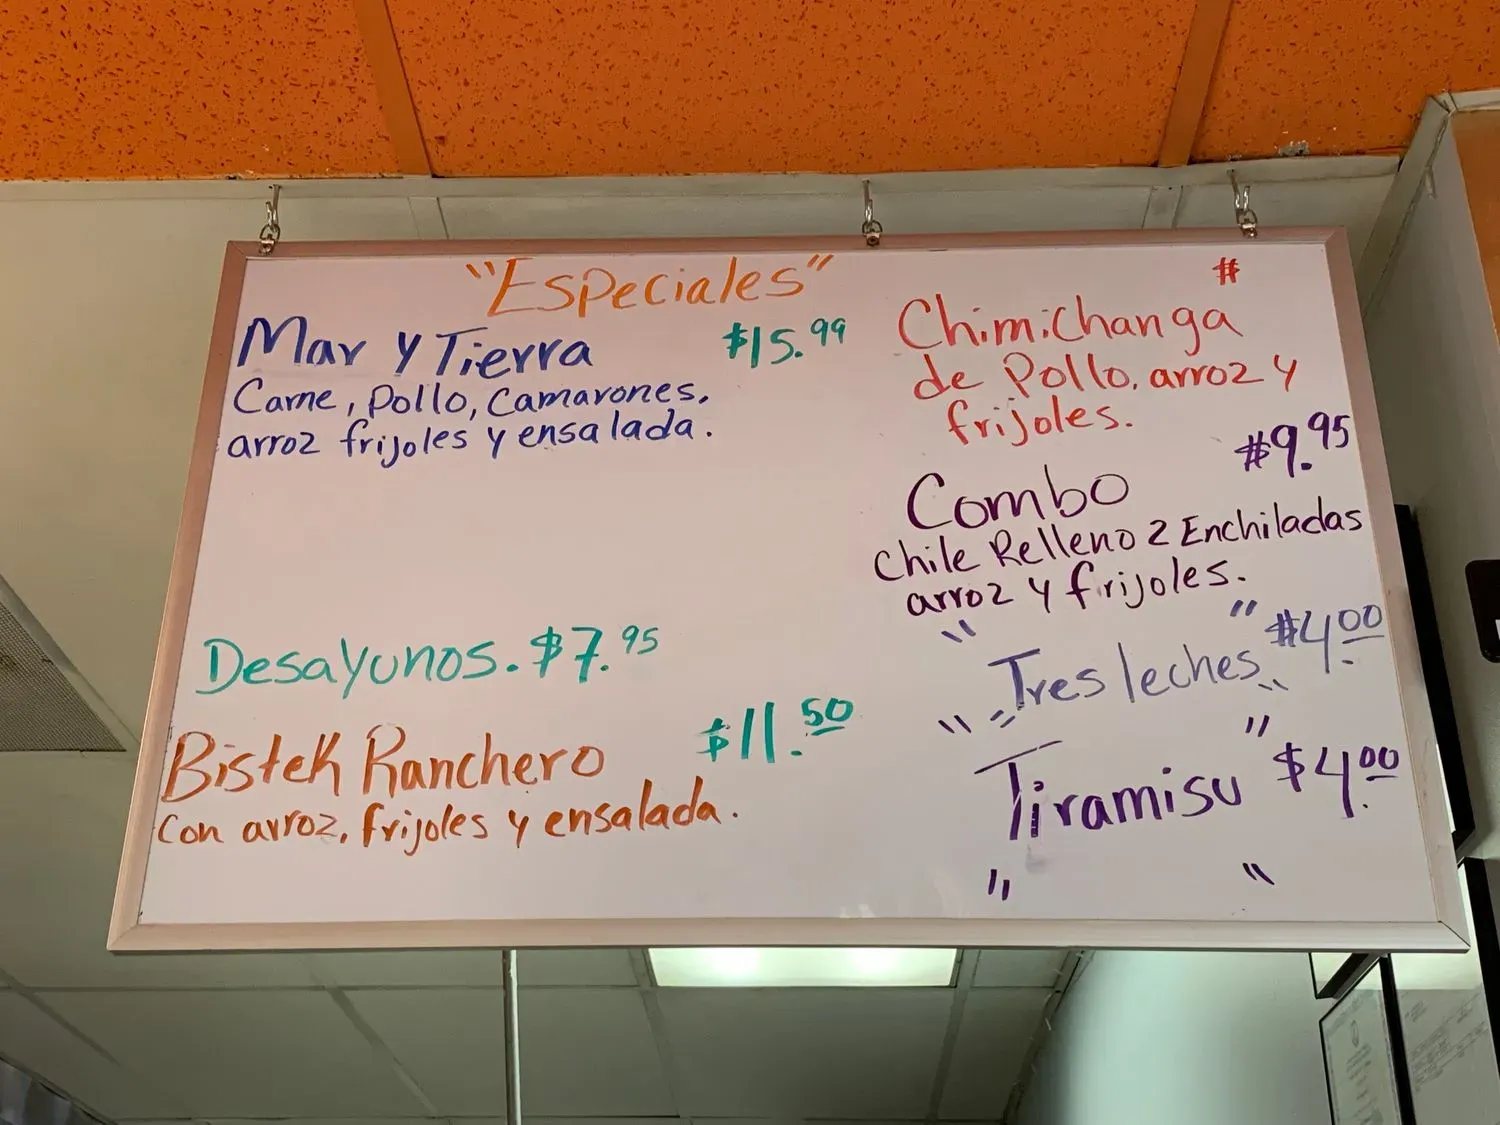 "Especiales"
Mar y Tierra $15.99
Carne, Pollo, Camarones,
arroz frijoles y ensalada.
Desayunos. $7.95
Bistek Ranchero $11.50
con arroz, frijoles y ensalada.
#
Chimichanga
de Pollo, arroz y
frijoles.
Combo $9.95
Chile Relleno 2 Enchiladas
arroz y frijoles.
"Tres leches" $4.00
"Tiramisu" $4.00